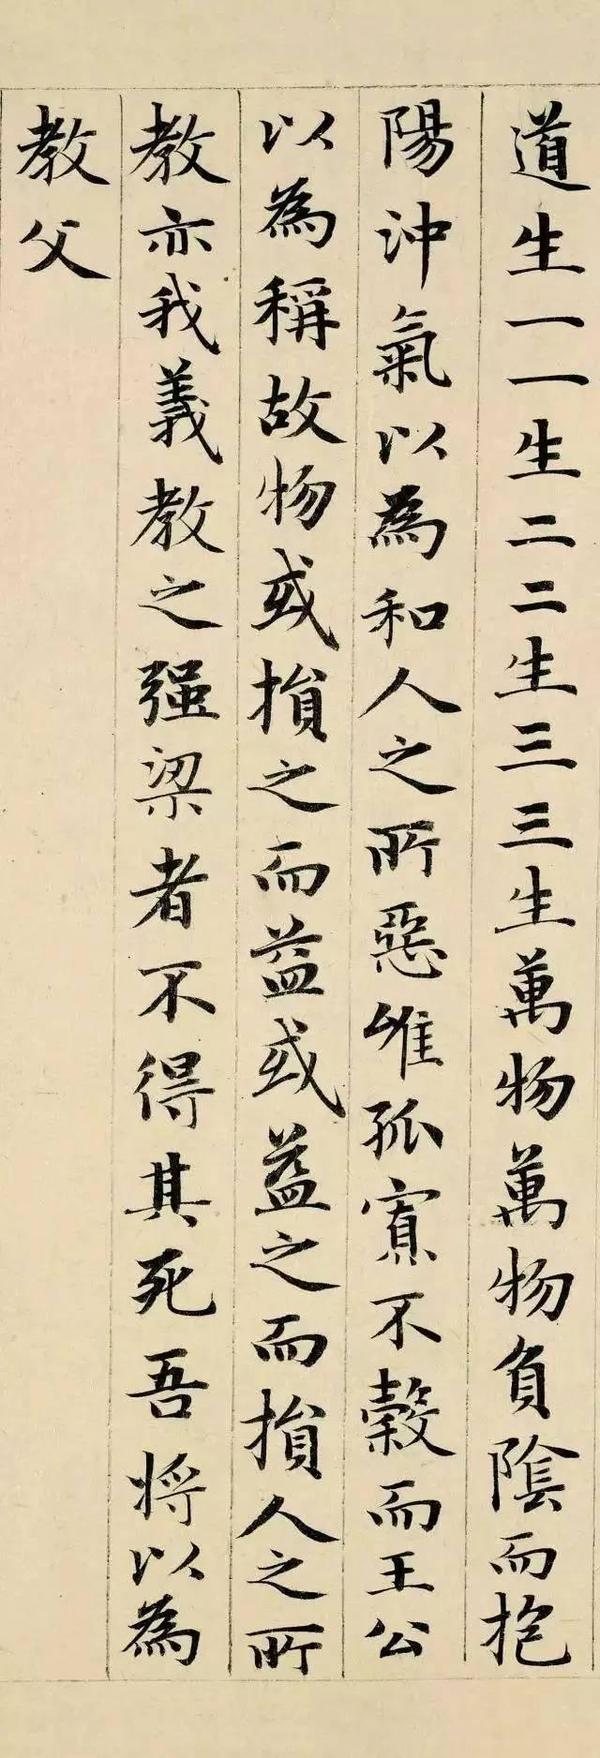 道生一一生二二生三三生萬物萬物負陰而抱
陽沖氣以為和人之所惡唯孤寡不穀而王公
以為稱故物或損之而益或益之而損人之所
教亦我義教之強梁者不得其死吾將以為
教父